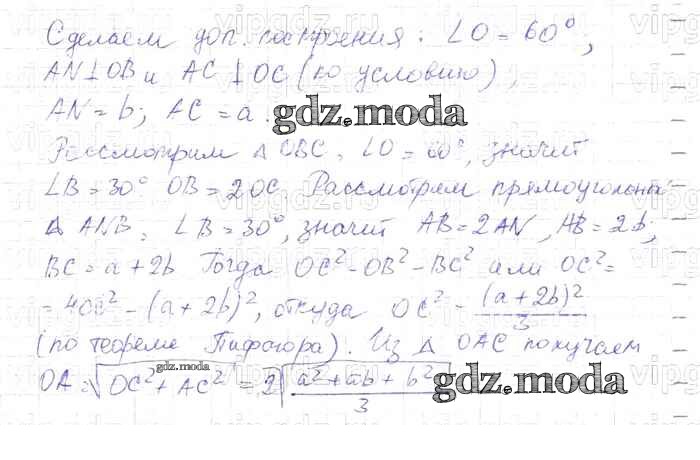 Сделаем доп. построения: ∠O = 60°,
AN⊥OB и AC⊥OC (по условию),
AN = b; AC = a.
gdz.moda
Рассмотрим △OBC, ∠O = 60°, значит
∠B = 30° OB = 2OC Рассмотрим прямоугольный
△ ANB, ∠B = 30°, значит AB = 2AN, AB = 2b;
BC = a + 2b Тогда OC² - OB² - BC² или OC² =
= 4OC² - (a + 2b)², откуда OC² - (a + 2b)²/3
(по теореме Пифагора). Из △ OAC получаем
gdz.moda
OA = √OC² + AC² = 2√a² + ab + b²/3
gdz.moda